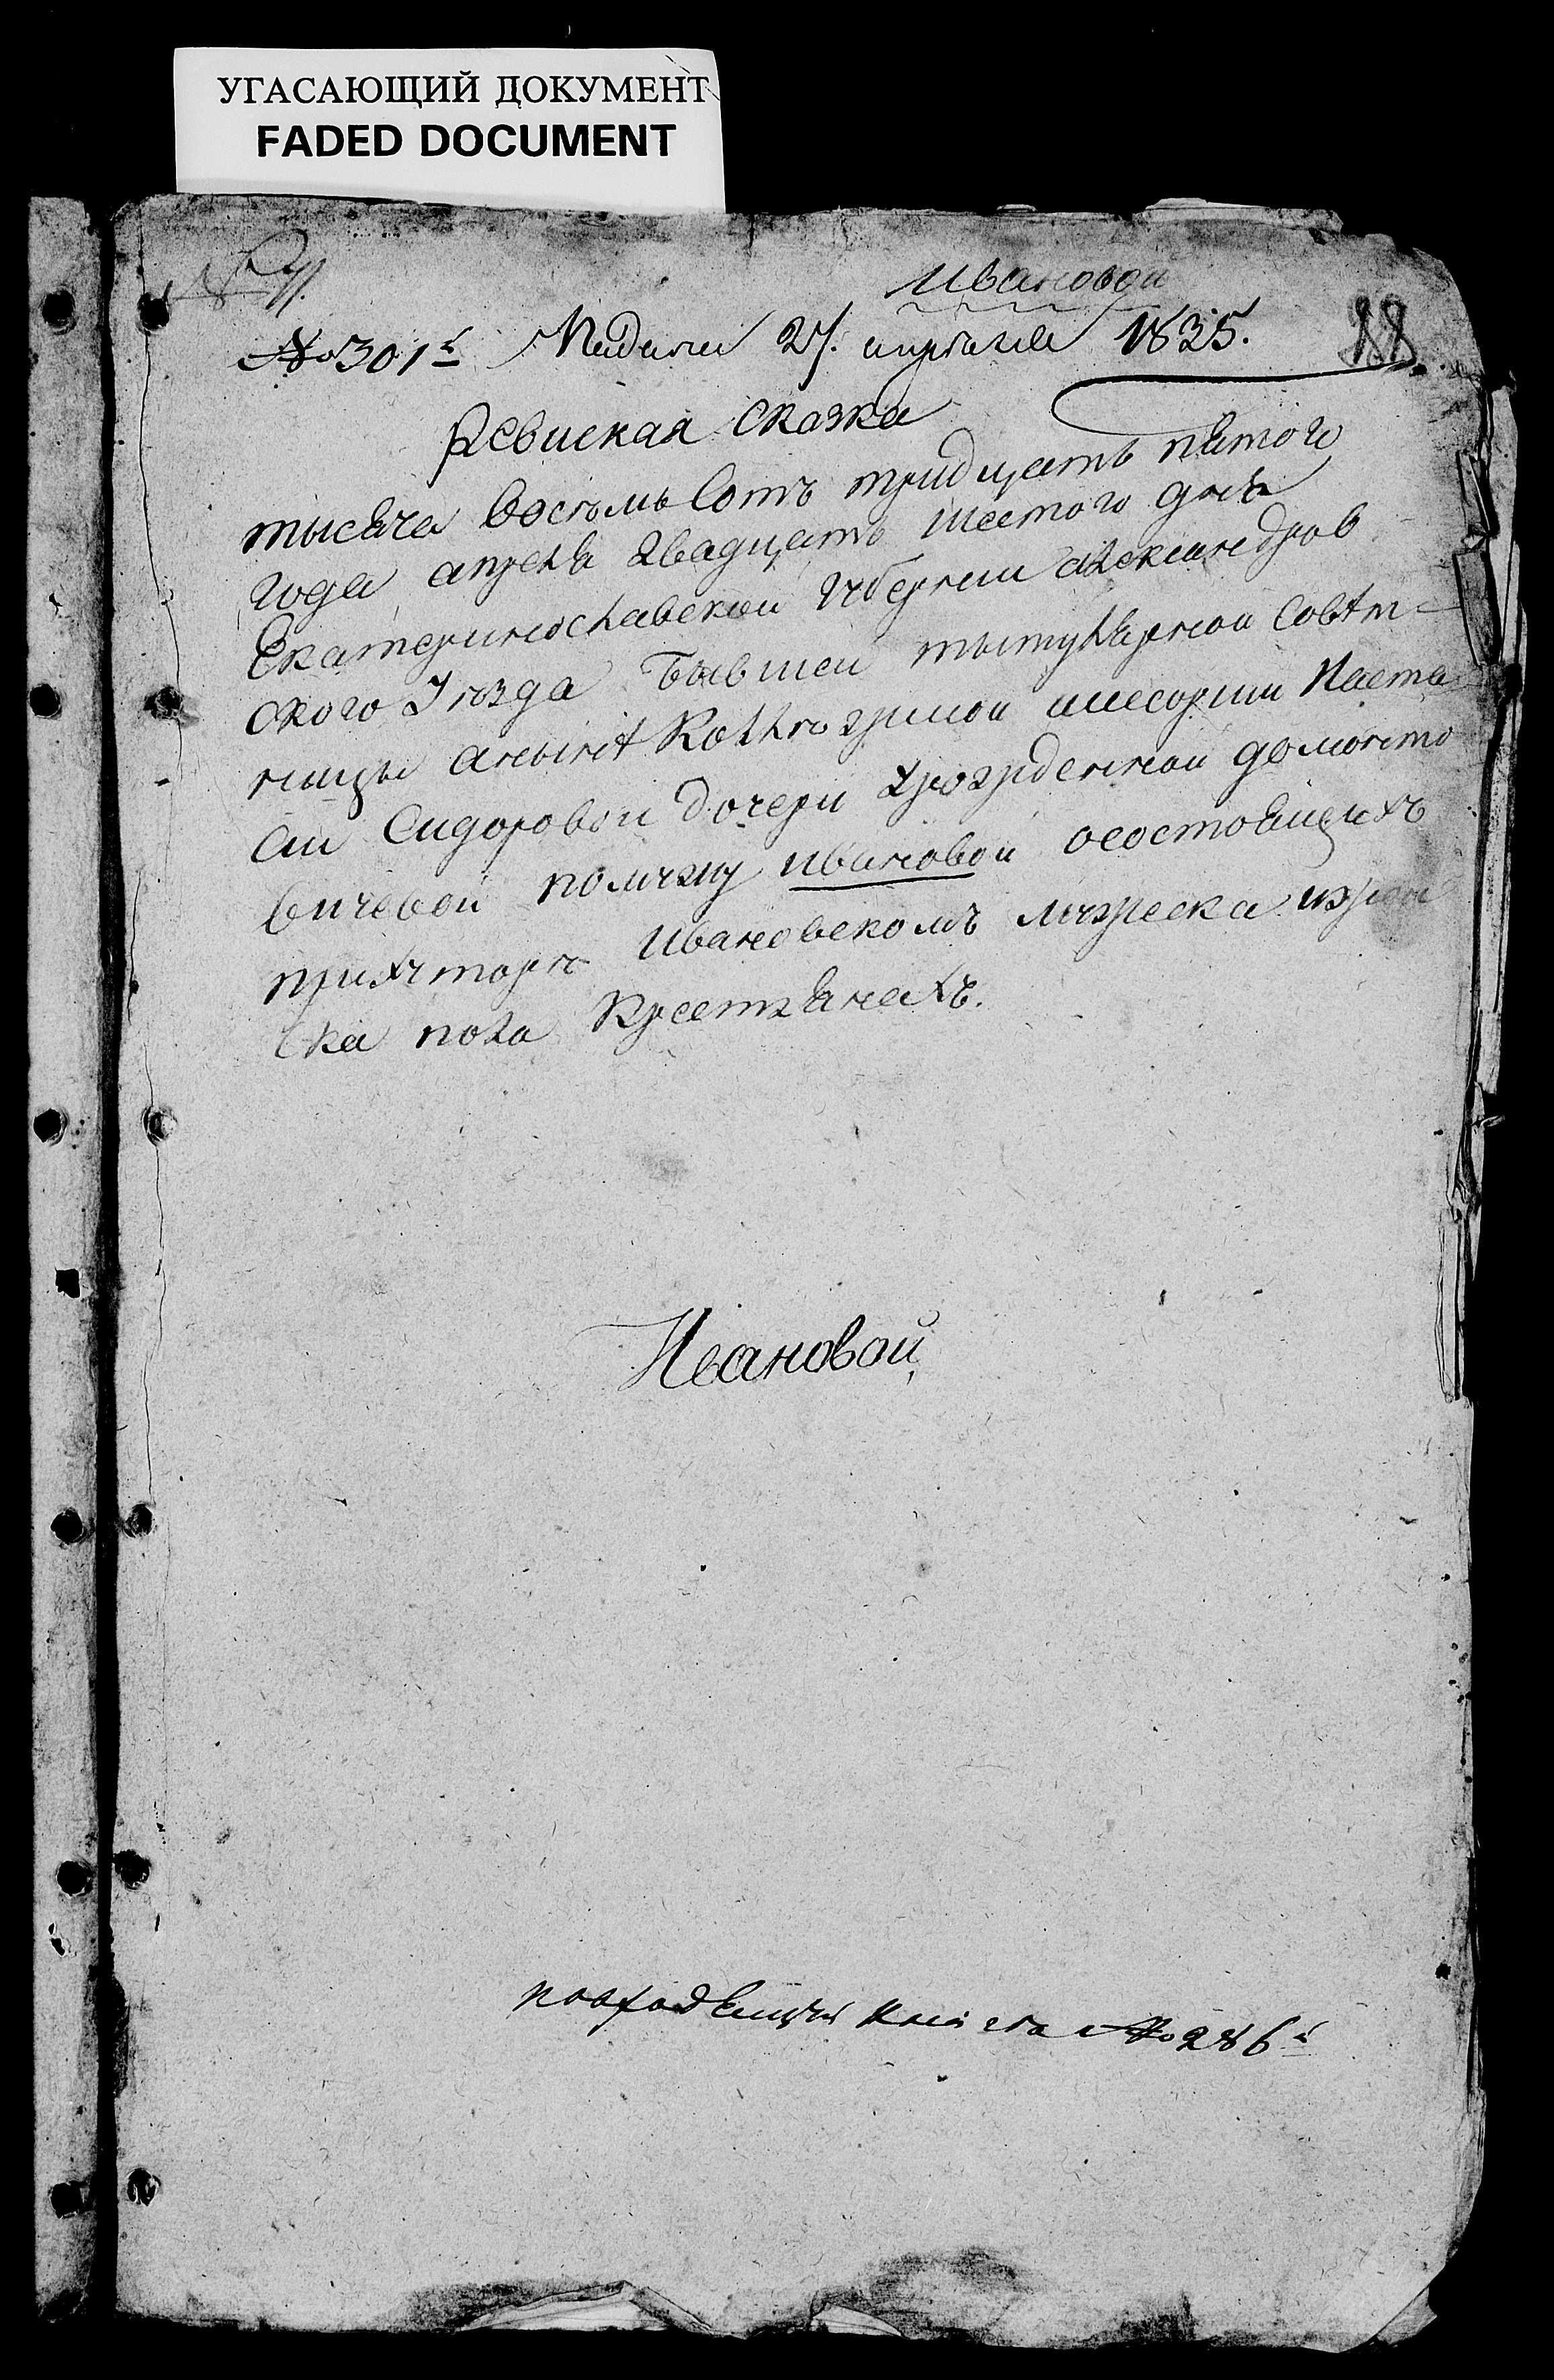 УГАСАЮЩИЙ ДОКУМЕНТ
FADED DOCUMENT
Ивановой
№ 301й Подана 27. апреля 1835.
88
Ревиская Сказка
тысяча восъмь Сотъ тридцать пятого
года апреля двадцать шестого дня
Екатеринославской губернии Александров
ского Уезда Бывшей тытулярной Совѣт-
ницы анынѣ Коллѣзской Наста
сии Сидоровой Дочери урозжденной домонто
вичевой помужу Ивановой осостоящихъ
Ивановскомъ мужеска ижен
ска пола Крестянахъ.
Ивановой
Повходящей Книга № 286й